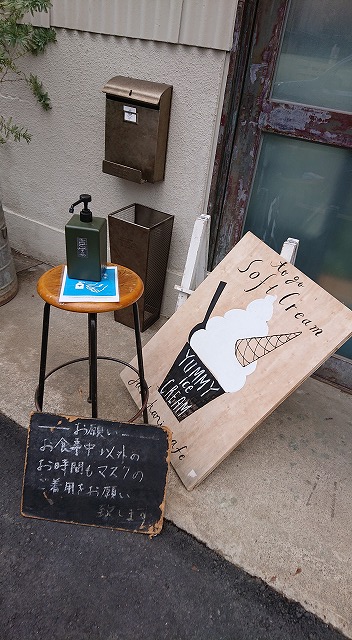 To go
Soft Cream
YUMMY
ice
CREAM
cafe
お願い
お食事中以外の
お時間もマスクの
ご着用をお願い
致します